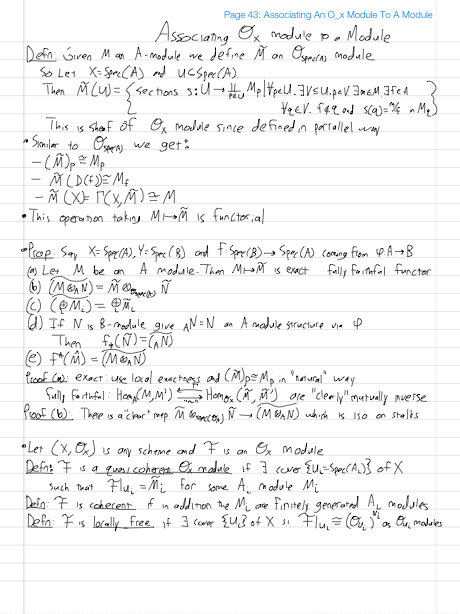 Page 43: Associating An O_x Module To A Module
Associating Oₓ module to a Module
Defn: Given M an A-module we define M̃ an O_Spec(A) module
So Let X=Spec(A) and U⊆Spec(A)
Then M̃(U)={sections s:U→∐_{p∈U} M_p | ∀p∈U. ∃V⊆U. p∈V ∃m∈M ∃f∈A
∀q∈V. f∉q and s(q)=m/f in M_q}
This is sheaf of Oₓ module since defined in parallel way
• Similar to O_Spec(A) we get:
- (M̃)_p ≅ M_p
- M̃(D(f)) ≅ M_f
- M̃(X)= Γ(X,M̃) ≅ M
• This operation taking M↦M̃ is functorial
• Prop: Say X=Spec(A), Y=Spec(B) and f:Spec(B)→Spec(A) coming from φ:A→B
(a) Let M be an A module. Then M↦M̃ is exact fully faithful functor
(b) (M⊗_A N)~ = M̃ ⊗_{O_Spec(A)} Ñ
(c) (⊕M_i)~ = ⊕M̃_i
(d) If N is B-module give _AN=N an A module structure via φ
Then f_*(Ñ)=(_AN)~
(e) f*(M̃)=(M⊗_A N)~
Proof (a): exact: use local exactness and (M̃)_p≅M_p in "natural" way
fully faithful: Hom_A(M,M') ⇄ Hom_{Oₓ}(M̃,M̃') are "clearly" mutually inverse
Proof (b): There is a "clear" map M̃ ⊗_{O_Spec(A)} Ñ → (M⊗_A N)~ which is iso on stalks
• Let (X,Oₓ) is any scheme and F is an Oₓ module
Defn: F is a quasi coherent Oₓ module if ∃ cover {U_i=Spec(A_i)} of X
such that F|_{U_i} = M̃_i for some A_i module M_i
Defn: F is coherent if in addition the M_i are finitely generated A_i modules
Defn: F is locally free if ∃ cover {U_i} of X s.t. F|_{U_i} ≅ (O_{U_i})^{N_i} as O_{U_i} modules